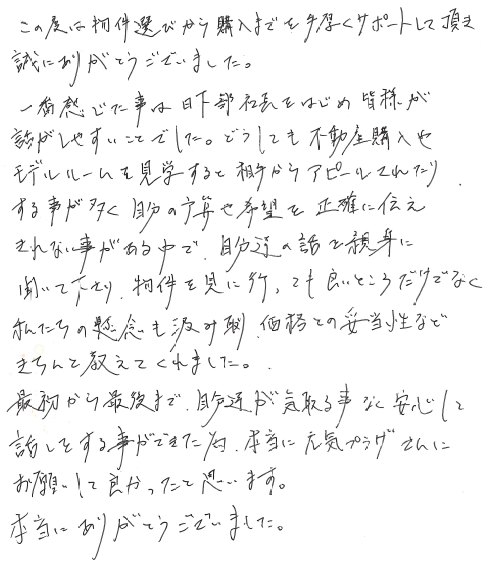 この度は物件選びから購入までを手厚くサポートして頂き
誠にありがとうございました。
一番感じた事は日下部社長をはじめ皆様が
話がしやすいことでした。どうしても不動産購入や
モデルルームを見学すると相手からアピールされたり
する事が多く自分の予算や希望を正確に伝え
きれない事がある中で、自分達の話を親身に
聞いて下さり、物件を見に行っても良いところだけでなく
私たちの懸念も汲み取り、価格との妥当性など
きちんと教えてくれました。
最初から最後まで、自分達が気取る事なく安心して
話しをする事ができた為、本当に元気プラザさんに
お願いして良かったと思います。
本当にありがとうございました。